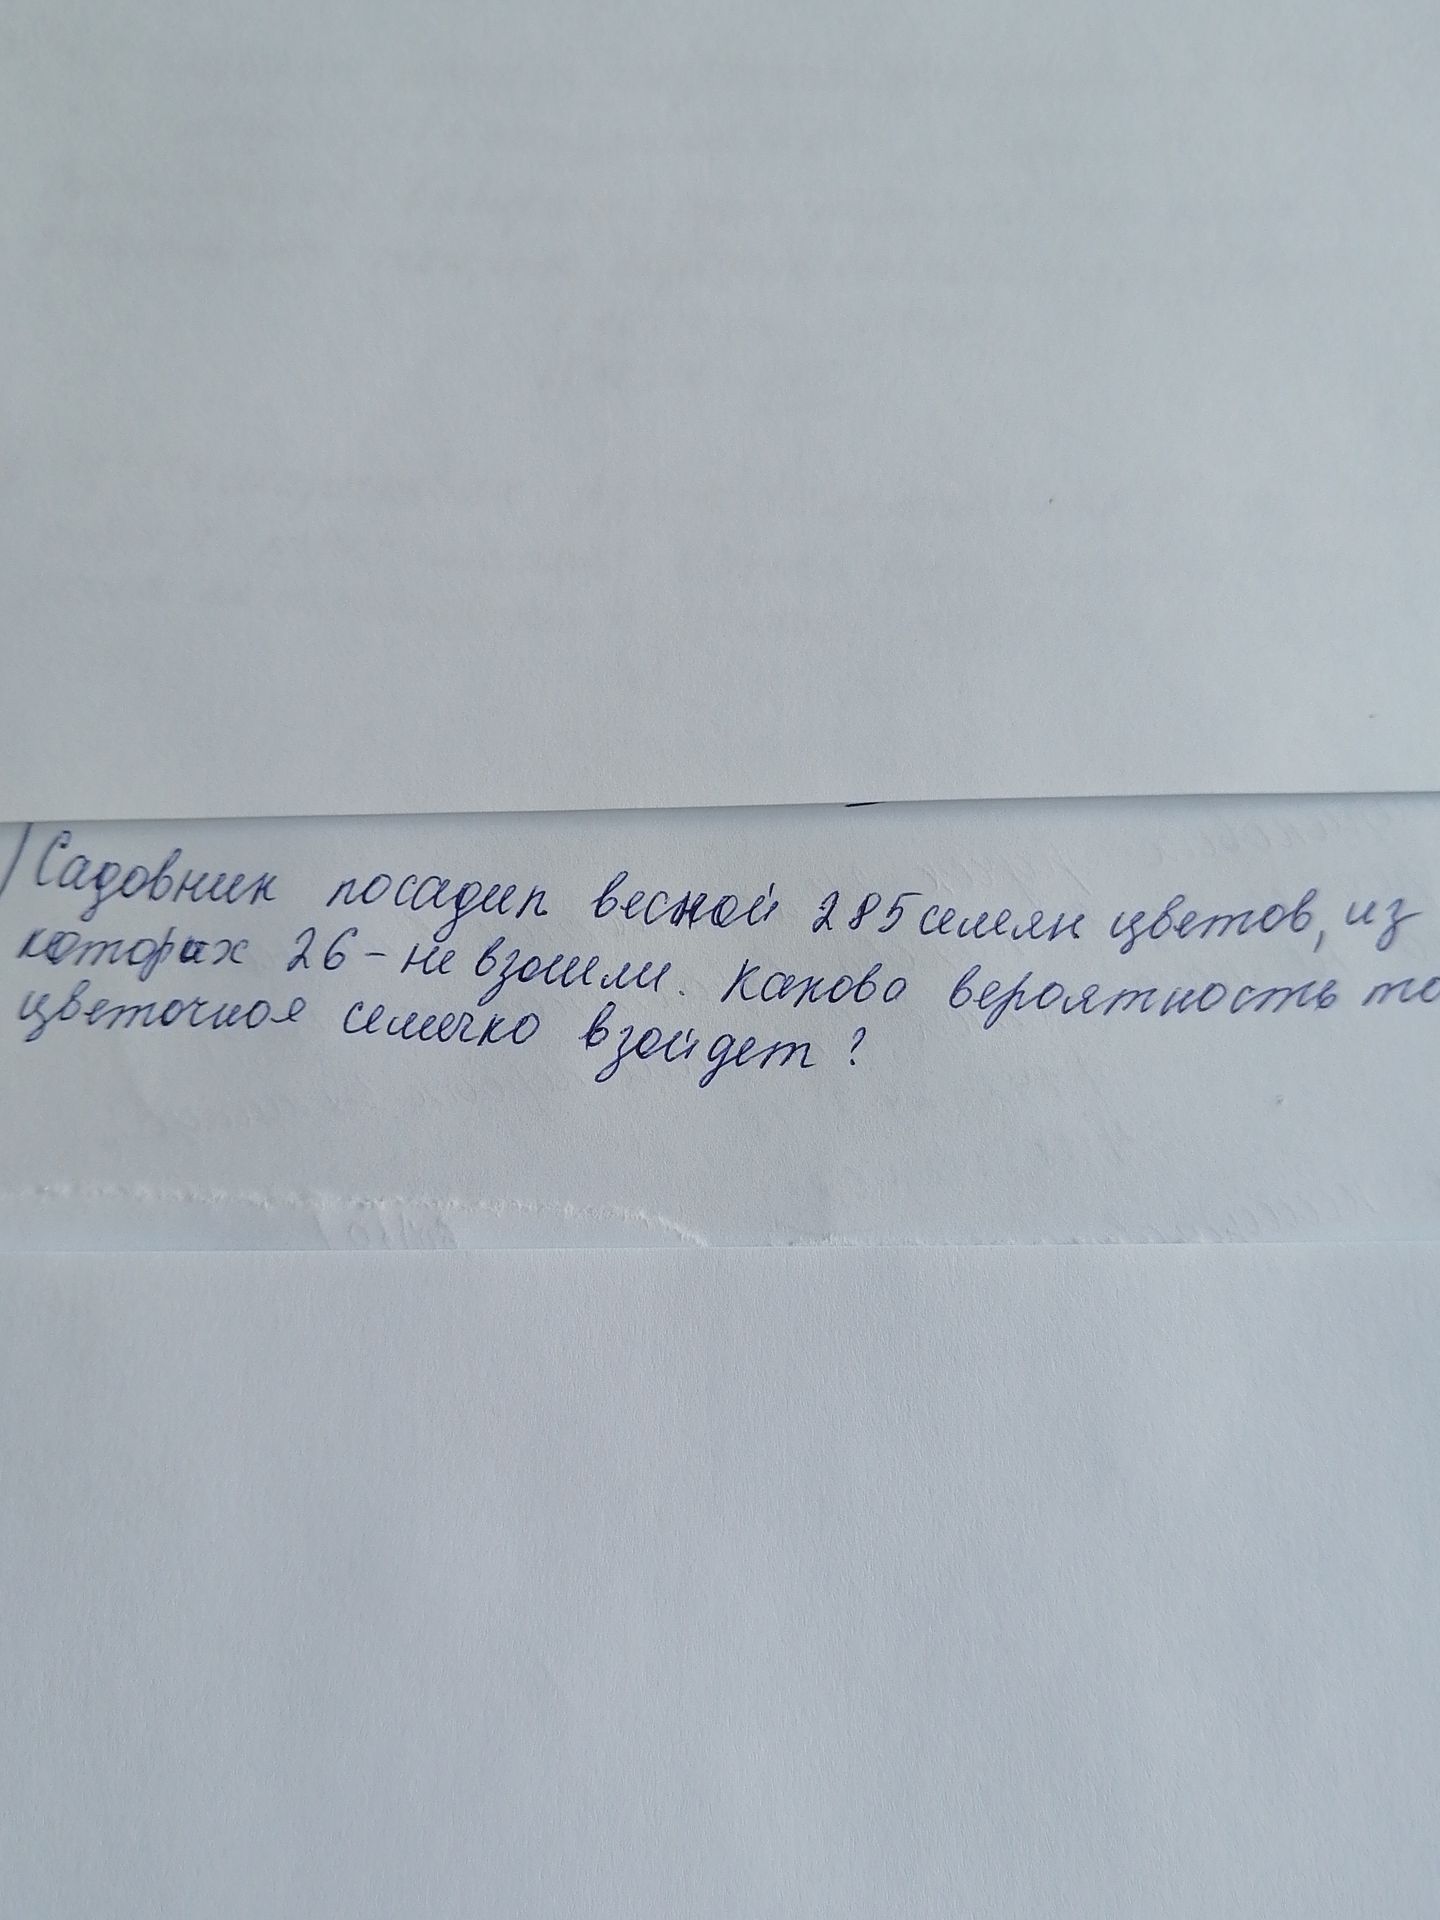 Садовник посадил весной 285 семян цветов, из
которых 26 - не взошли. Какова вероятность то
цветочное семечко взойдет?